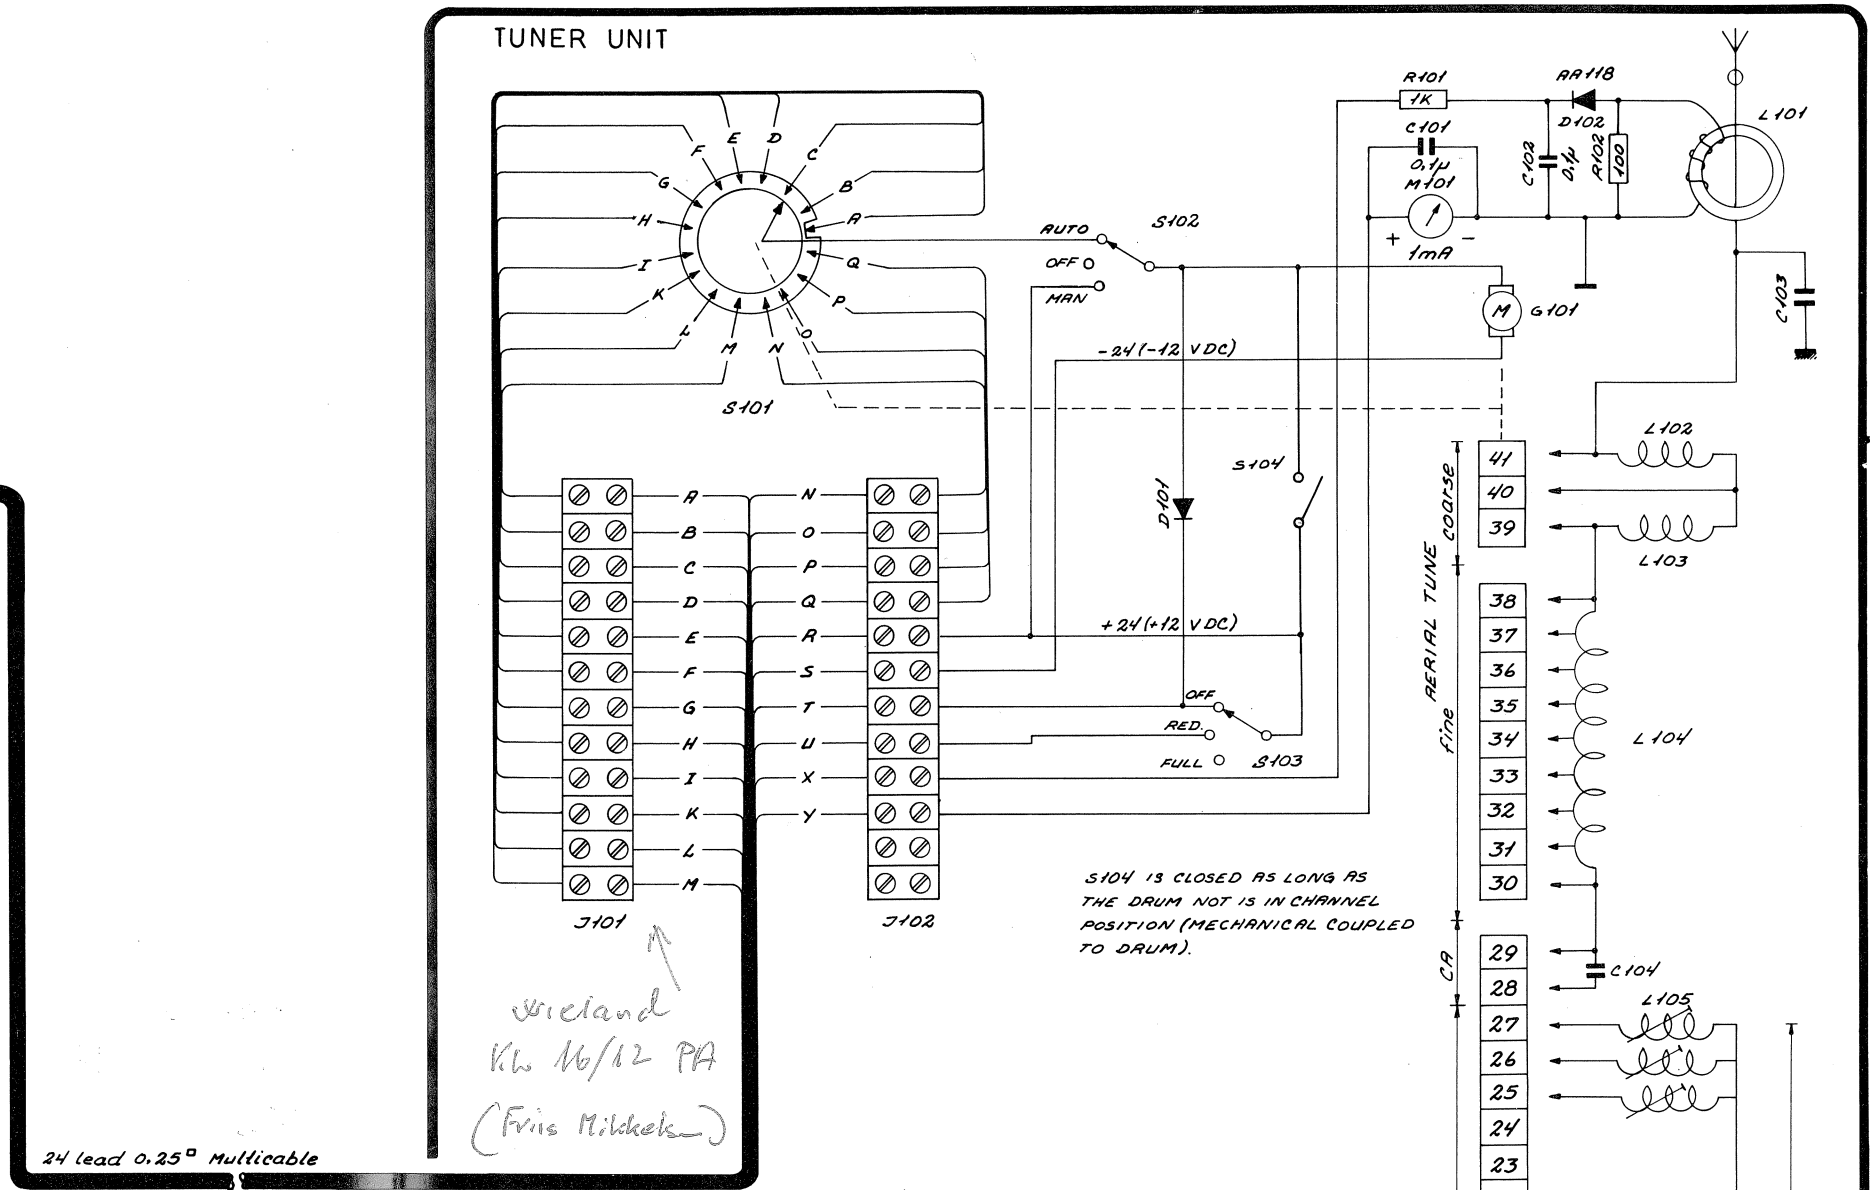 TUNER UNIT
R101
1K
AA118
D102
C101
0,1µ
C102
0,1µ
R102
100
L101
M101
+ -
1mA
E D
F C
G B
H A
I Q
K P
L O
M N
S101
AUTO
OFF
MAN
S102
M G101
C103
-24(-12 VDC)
D101
S104
+24(+12 VDC)
OFF
RED.
FULL
S103
A N
B O
C P
D Q
E R
F S
G T
H U
I X
K Y
L
M
J101
J102
S104 IS CLOSED AS LONG AS
THE DRUM NOT IS IN CHANNEL
POSITION (MECHANICAL COUPLED
TO DRUM).
AERIAL TUNE
coarse
fine
CA
41
40
39
38
37
36
35
34
33
32
31
30
29
28
27
26
25
24
23
L102
L103
L104
C104
L105
Wieland
16/12 PA
(Friis
24 lead 0.25▫ Multicable